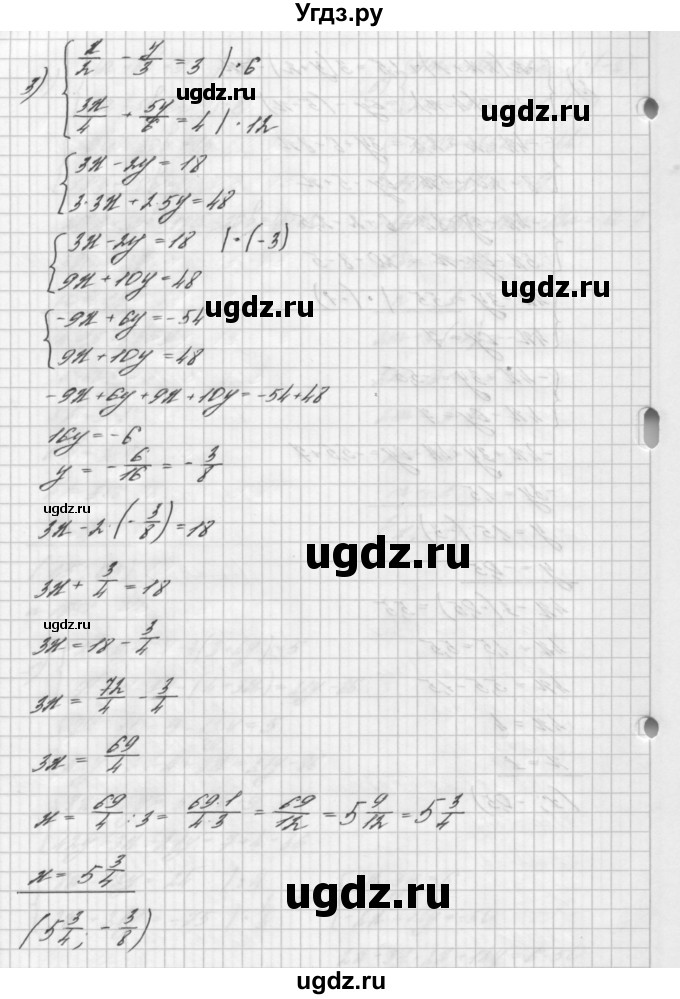 Угдз.ру
3) { x/2 - y/3 = 3 | · 6
3x/4 + 5y/6 = 4 | · 12
ugdz.ru
{ 3x - 2y = 18
3·3x + 2·5y = 48
{ 3x - 2y = 18 | · (-3)
9x + 10y = 48
ugdz.ru
ugdz.ru
{ -9x + 6y = -54
9x + 10y = 48
-9x + 6y + 9x + 10y = -54 + 48
16y = -6
y = - 6/16 = - 3/8
ugdz.ru
3x - 2·(- 3/8) = 18
ugdz.ru
3x + 3/4 = 18
ugdz.ru
3x = 18 - 3/4
3x = 72/4 - 3/4
3x = 69/4
x = 69/4 : 3 = 69·1/4·3 = 69/12 = 5 9/12 = 5 3/4
x = 5 3/4
ugdz.ru
(5 3/4; - 3/8)
ugdz.ru
ugdz.ru